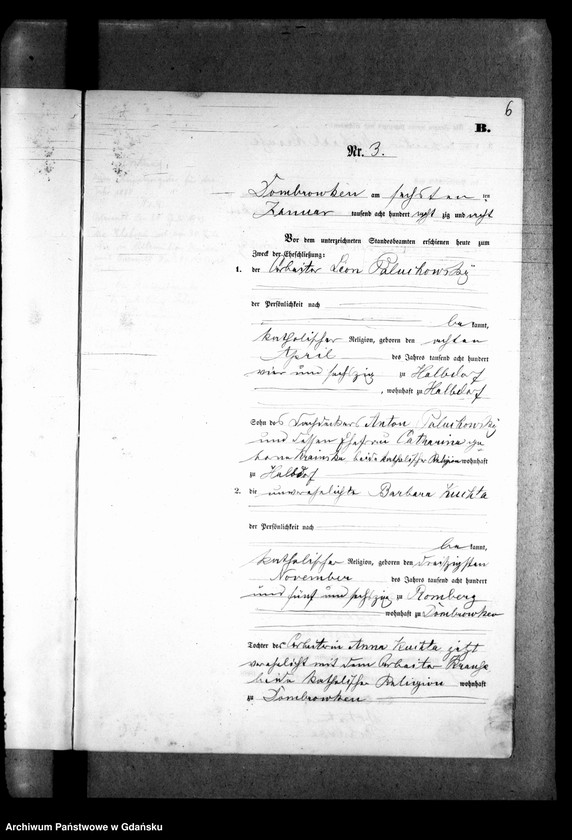 6
B.
Nr. 3.
Dombrowken am sechsten ten
Januar tausend acht hundert acht zig und acht
Vor dem unterzeichneten Standesbeamten erschienen heute zum
Zweck der Eheschließung:
1. der Arbeiter Leon Paluchowsky
der Persönlichkeit nach
be kannt,
katholischer Religion, geboren den achten
April des Jahres tausend acht hundert
vier und sechszig zu Halbdorf
, wohnhaft zu Halbdorf
Sohn des Dachdeckers Anton Paluchowsky
und dessen Ehefrau Catharina ge
borne beide katholischer Religion wohnhaft
zu Halbdorf
2. die unverehelichte Barbara
der Persönlichkeit nach
be kannt,
katholischer Religion, geboren den dreizigsten
November des Jahres tausend acht hundert
und fünf und sechszig zu Romberg
wohnhaft zu Dombrowken
Tochter der Arbeiterin Anna jetzt
verehelicht mit dem Arbeiter Krause
beide katholischer Religion wohnhaft
zu Dombrowken
Archiwum Państwowe w Gdańsku